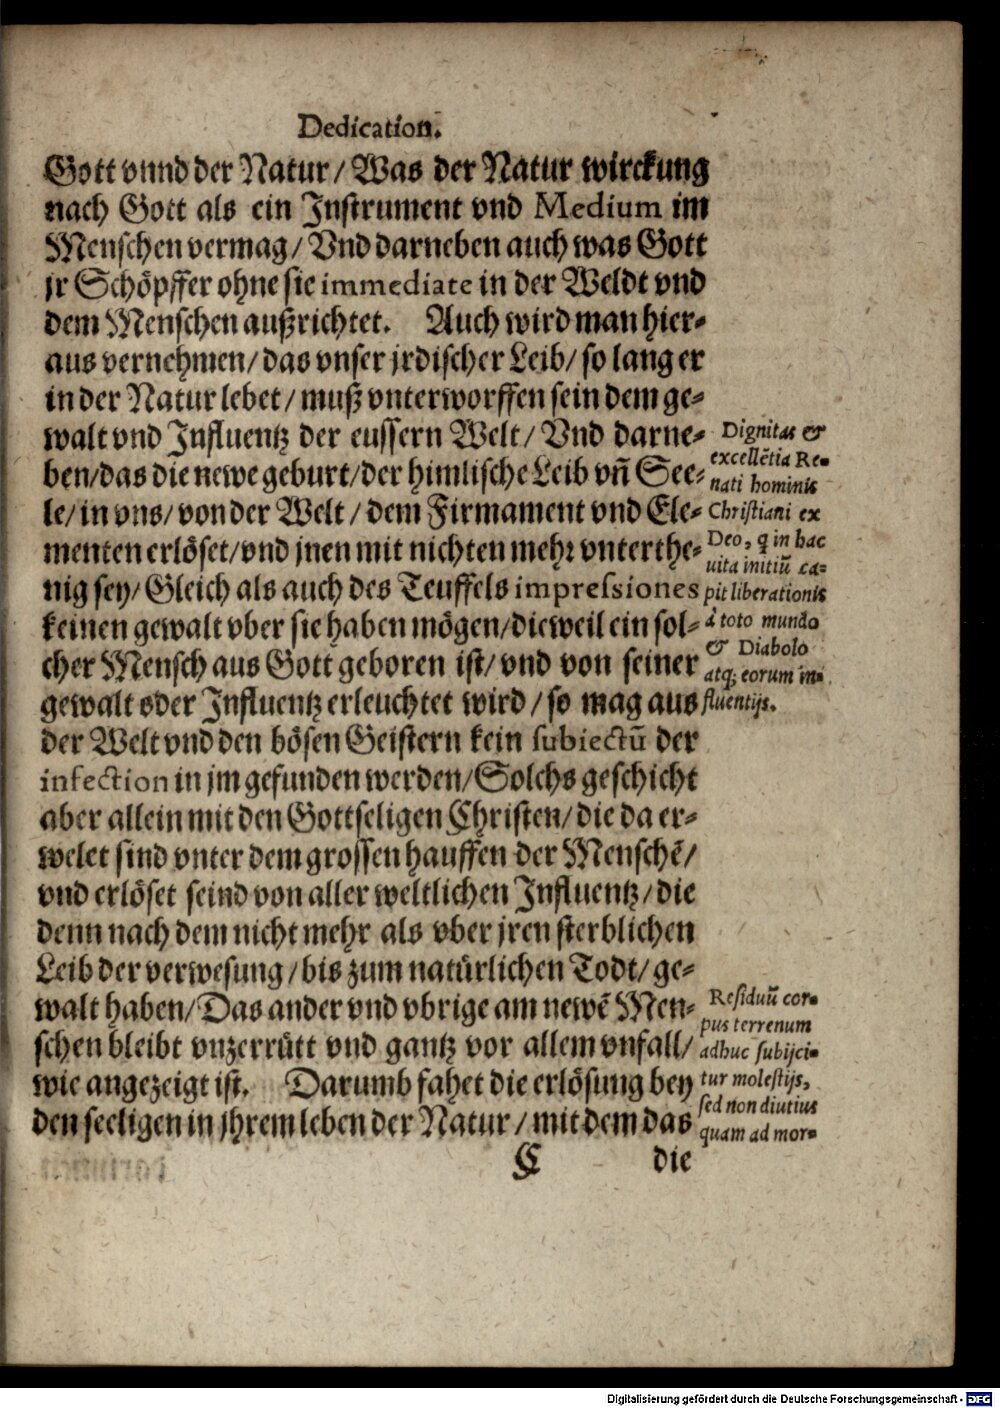 Dedication.
Gott vnnd der Natur / Was der Natur wirckung
nach Gott als ein Instrument vnd Medium im
Menschen vermag / Vnd darneben auch was Gott
jr Schöpffer ohne sie immediate in der Weldt vnd
dem Menschen außrichtet. Auch wird man hier-
aus vernehmen / das vnser jrdischer Leib / so lang er
in der Natur lebet / muß vnterworffen sein dem ge-
walt vnd Influentz der eussern Welt / Vnd darne-
ben / das die newe geburt / der himlische Leib vñ See-
le / in vns / von der Welt / dem Firmament vnd Ele-
menten erlöset / vnd jnen mit nichten mehr vnterthe-
nig sey / Gleich als auch des Teuffels impressiones
keinen gewalt vber sie haben mögen / dieweil ein sol-
cher Mensch aus Gott geboren ist / vnd von seiner
gewalt oder Influentz erleuchtet wird / so mag aus
der Welt vnd den bösen Geistern kein subiectū der
infection in jm gefunden werden / Solchs geschicht
aber allein mit den Gottseligen Christen / die da er-
welet sind vnter dem grossen hauffen der Menschē /
vnd erlöset seind von aller weltlichen Influentz / die
denn nach dem nicht mehr als vber jren sterblichen
Leib der verwesung / bis zum natürlichen Todt / ge-
walt haben / Das ander vnd vbrige am newē Men-
schen bleibt vnzerrütt vnd gantz vor allem vnfall /
wie angezeigt ist. Darumb fahet die erlösung bey
den seeligen in jhrem leben der Natur / mit dem das
C die
Dignitas &
excellētia Re-
nati hominis
Christiani ex
Deo, q in hac
uita initiū ca-
pit liberationis
à toto mundo
& Diabolo
atq; eorum in-
fluentijs.
Residuū cor-
pus terrenum
adhuc subijci-
tur molestijs,
sed non diutius
quam ad mor-
Digitalisierung gefördert durch die Deutsche Forschungsgemeinschaft - DFG